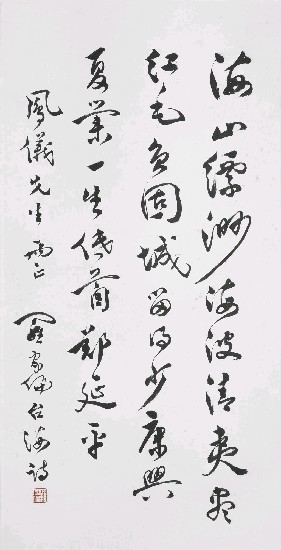 海山縹渺海波清夷尽
红毛負固城留得少康興
夏業一生低首鄭延平
鳳儀先生正 家佩台海诗